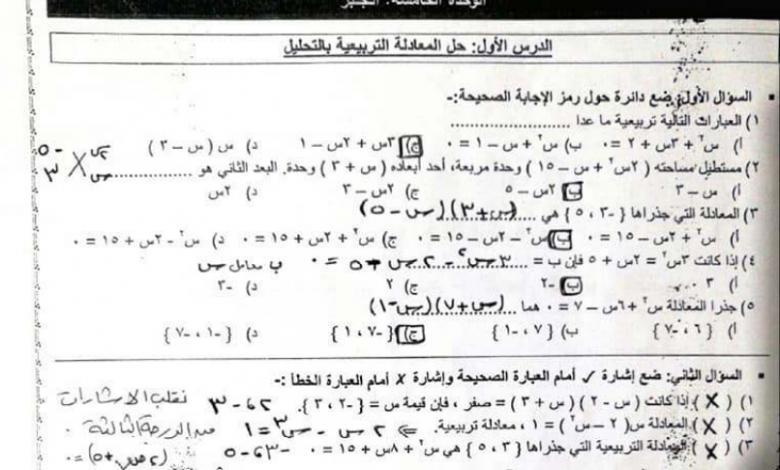 الوحدة الخامسة: الجبر
الدرس الأول: حل المعادلة التربيعية بالتحليل
السؤال الأول: ضع دائرة حول رمز الإجابة الصحيحة:-
١) العبارات التالية تربيعية ما عدا ..........
أ) س٢ + ٣س + ٢ = ٠ ب) س٢ + س - ١ = ٠ ج) ٣س + ٢س - ١ د) س ( س - ٣ )
٢) مستطيل مساحته ( ٢س٢ + س - ١٥ ) وحدة مربعة، أحد أبعاده ( س + ٣ ) وحدة. البعد الثاني هو .......... ٢س - ٥ س ٣
أ) س - ٣ ب) ٢س - ٥ ج) ٢س - ٣ د) ٢س
٣) المعادلة التي جذراها { -٣ ، ٥ } هي (س+٣)(س-٥)
أ) س٢ + ٢س - ١٥ = ٠ ب) س٢ - ٢س - ١٥ = ٠ ج) س٢ + ٢س + ١٥ = ٠ د) س٢ - ٢س + ١٥ = ٠
٤) إذا كانت ٣س٢ = ٢س + ٥ فإن ب = ٣س٢ - ٢س + ٥ = ٠ ب معامل س
أ) ٣ ب) -٢ ج) ٢ د) -٣
٥) جذرا المعادلة س٢ + ٦س - ٧ = ٠ هما (س+٧)(س-١)
أ) { ٦ ، -٧ } ب) { ٧ ، -١ } ج) { -٧ ، ١ } د) { -١ ، -٧ }
السؤال الثاني: ضع إشارة ✓ أمام العبارة الصحيحة وإشارة ✗ أمام العبارة الخطأ :-
١) ( X ) إذا كانت ( س - ٢ ) ( س + ٣ ) = صفر ، فإن قيمة س = { -٢ ، ٣ }. ٢، -٣ نقلب الاشارات
٢) ( X ) المعادلة س( ٢ - س٢ ) = ١ ، معادلة تربيعية. ⇐ ٢س - س٣ = ١ من الدرجة الثالثة
٣) ( X ) المعادلة التربيعية التي جذراها { ٣ ، ٥ } هي س٢ + ٨س + ١٥ = ٠ -٣، -٥